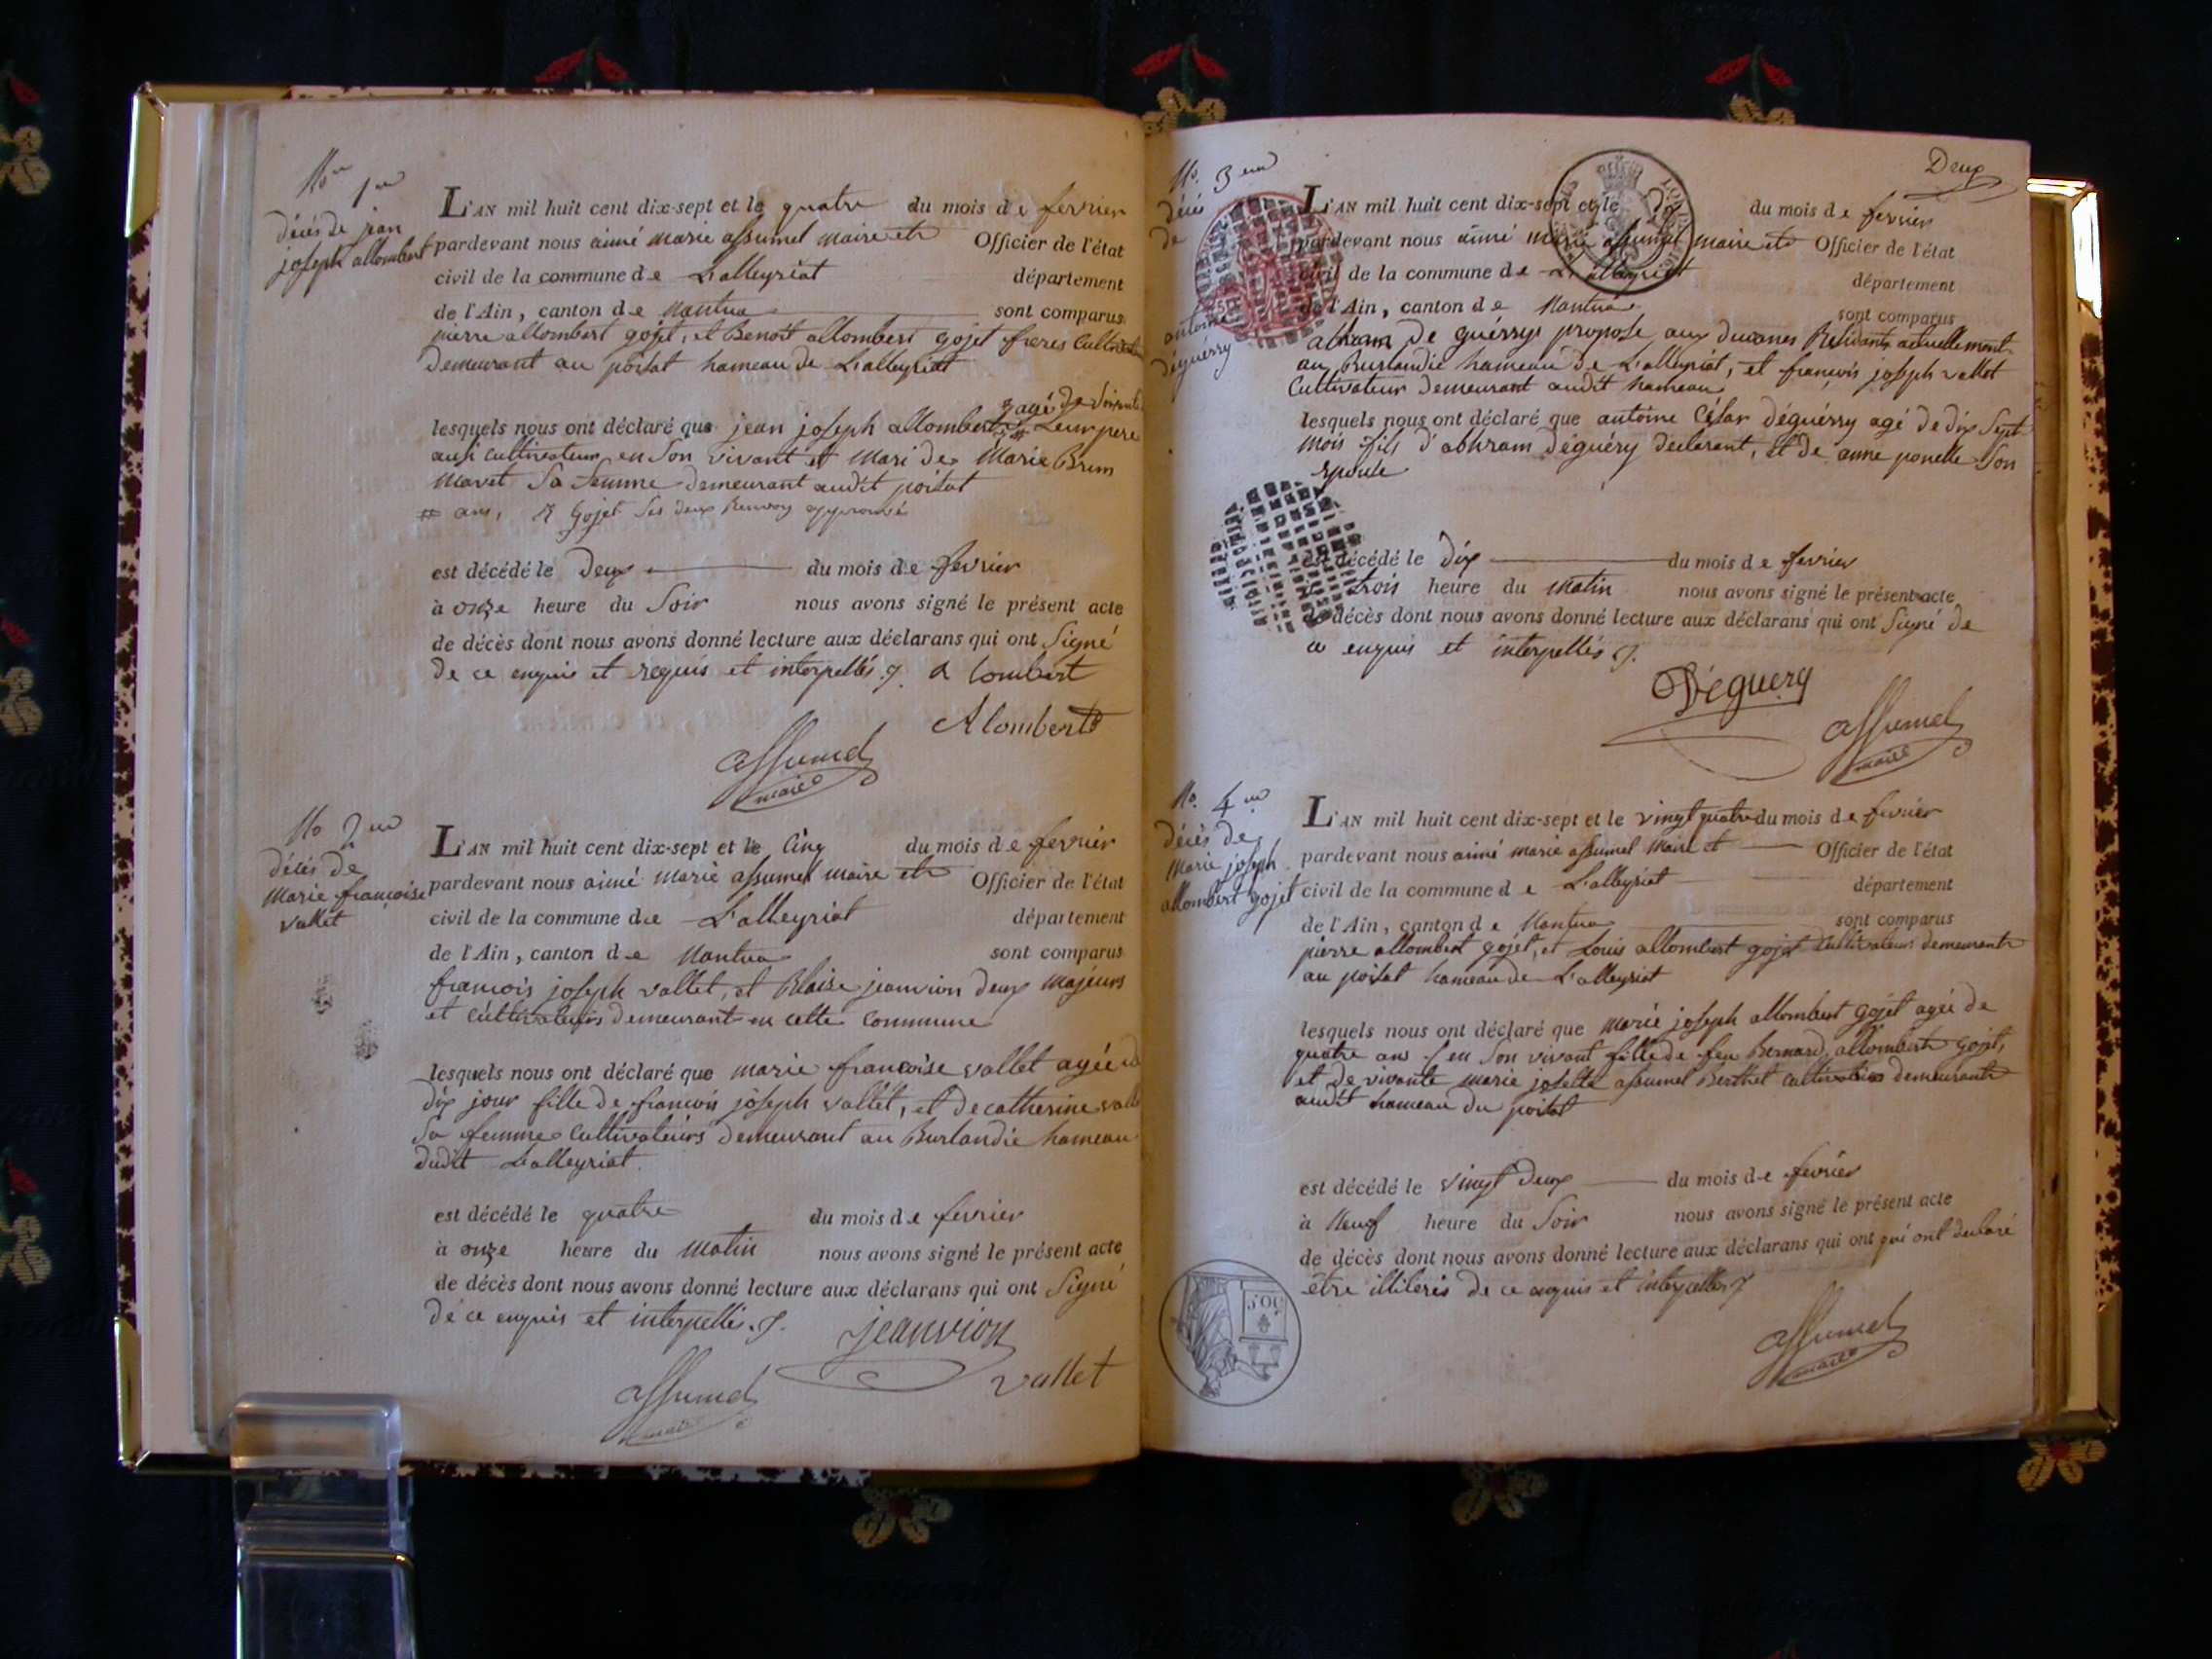 No 1er
décès de jean
joseph allombert
L'AN mil huit cent dix-sept et le quatre du mois de fevrier
pardevant nous aimé marie assumel maire et Officier de l'état
civil de la commune de Lalleyriat département
de l'Ain, canton de Nantua sont comparus
pierre allombert gojet, et Benoit allombert gojet freres Cultivateurs
demeurant au poizat hameau de Lalleyriat
lesquels nous ont déclaré que jean joseph allombert Leur pere
agé de soixante
aussi Cultivateur en son vivant et Mari de Marie Brun
Mavet Sa femme demeurant audit poizat
# ans, gojet Les deux Renvoy approuvé
est décédé le Deux du mois de fevrier
à onze heure du Soir nous avons signé le présent acte
de décès dont nous avons donné lecture aux déclarans qui ont Signé
de ce enquis et requis et interpellés. alombert
Alombert
assumel
maire
No 2me
décès de
Marie françoise
vallet
L'AN mil huit cent dix-sept et le Cinq du mois de fevrier
pardevant nous aimé marie assumel maire et Officier de l'état
civil de la commune de Lalleyriat département
de l'Ain, canton de Nantua sont comparus
françois joseph vallet, et Blaise jeanvion deux Majeurs
et cultivateurs demeurant en cette Commune
lesquels nous ont déclaré que marie françoise vallet agée de
dix jour fille de françois joseph vallet, et de catherine
Sa femme Cultivateurs demeurant au Burlandie hameau
dudit Lalleyriat.
est décédé le quatre du mois de fevrier
à onze heure du Matin nous avons signé le présent acte
de décès dont nous avons donné lecture aux déclarans qui ont Signé
de ce enquis et interpellés.
jeanvion
vallet
assumel
maire
Deux
No. 3me
décès
de
antoine
déguérry
L'AN mil huit cent dix-sept et le dix du mois de fevrier
pardevant nous aimé marie assumel maire et Officier de l'état
civil de la commune de Lalleyriat département
de l'Ain, canton de Nantua sont comparus
abhram De guérry préposé aux duanes Résidant actuellement
au Burlandie hameau de Lalleyriat, et françois joseph vallet
Cultivateur demeurant audit hameau
lesquels nous ont déclaré que antoine César déguérry agé de dix Sept
mois fils d'abhram déguéry déclarant, et de anne ponelle Son
epouse
est décédé le dix du mois de fevrier
trois heure du Matin nous avons signé le présent acte
de décès dont nous avons donné lecture aux déclarans qui ont Signé de
ce enquis et interpellés.
Déguery
assumel
maire
No. 4me
décès de
Marie joseph
allombert gojet
L'AN mil huit cent dix-sept et le vingt quatre du mois de fevrier
pardevant nous aimé marie assumel Maire et Officier de l'état
civil de la commune de Lalleyriat département
de l'Ain, canton de Nantua sont comparus
pierre allombert gojet, et Louis allombert gojet Cultivateurs demeurant
au poizat hameau de Lalleyriat
lesquels nous ont déclaré que Marie joseph allombert gojet agée de
quatre ans en Son vivant fille de feu Bernard allombert gojet,
et de vivante marie josette assumel Berthet Cultivatrice demeurant
audit hameau du poizat
est décédé le vingt Deux du mois de fevrier
à Neuf heure du Soir nous avons signé le présent acte
de décès dont nous avons donné lecture aux déclarans qui ont qui ont declaré
être illiterés de ce enquis et interpellés
assumel
maire
50C